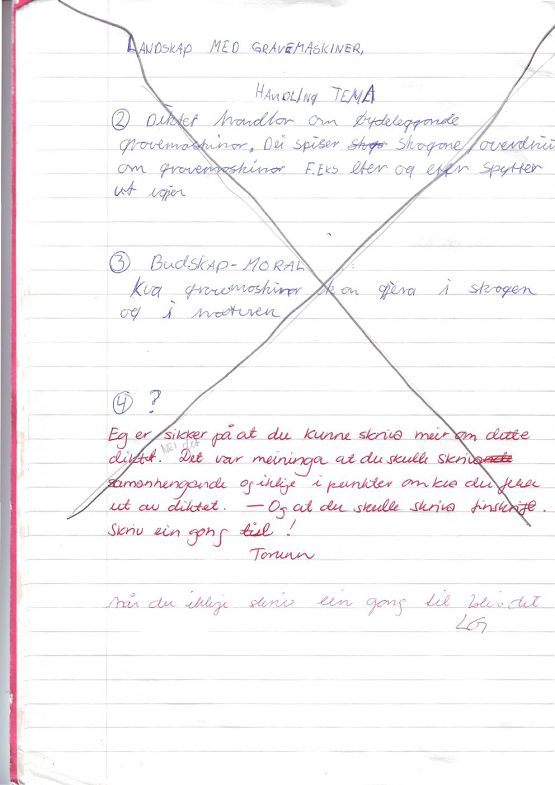 LANDSKAP MED GRAVEMASKINER,
HANDLING TEMA
② Diktet handlar om øydeleggande
gravemaskinar. Dei spiser skogane, overdriv
om gravemaskinar F.Eks Eter og eter spytter
ut igjen
③ BUDSKAP-MORAL
Kva gravemaskinar kan gjera i skogen
og i naturen
④ ?
Eg er sikker på at du kunne skrive meir om dette
Nei det
diktet. Det var meininga at du skulle skriva
samanhengande og ikkje i punkter om kva du fekk
ut av diktet. — Og at du skulle skriva finskrift.
Skriv ein gong til!
Torunn
Når du ikkje skriv ein gong til blir det
LG